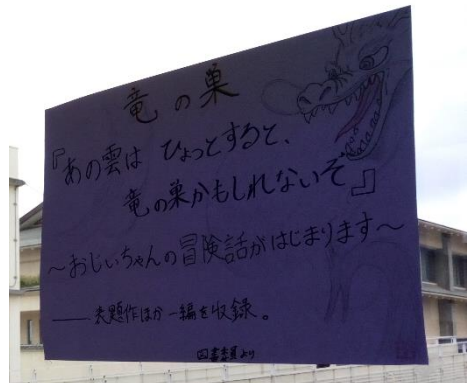 竜の巣
『あの雲は ひょっとすると、
竜の巣かもしれないぞ』
〜おじいちゃんの冒険話がはじまります〜
── 表題作ほか一編を収録。
図書委員より